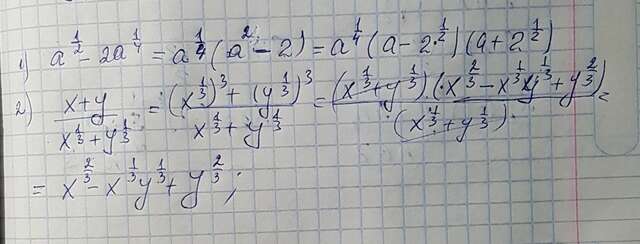 1) a^{1/2} - 2a^{1/4} = a^{1/4}(a^2 - 2) = a^{1/4}(a - 2^{1/2})(a + 2^{1/2})
2) \frac{x+y}{x^{1/3}+y^{1/3}} = \frac{(x^{1/3})^3 + (y^{1/3})^3}{x^{1/3}+y^{1/3}} = \frac{(x^{1/3}+y^{1/3})(x^{2/3} - x^{1/3}y^{1/3} + y^{2/3})}{(x^{1/3}+y^{1/3})} =
= x^{2/3} - x^{1/3}y^{1/3} + y^{2/3};